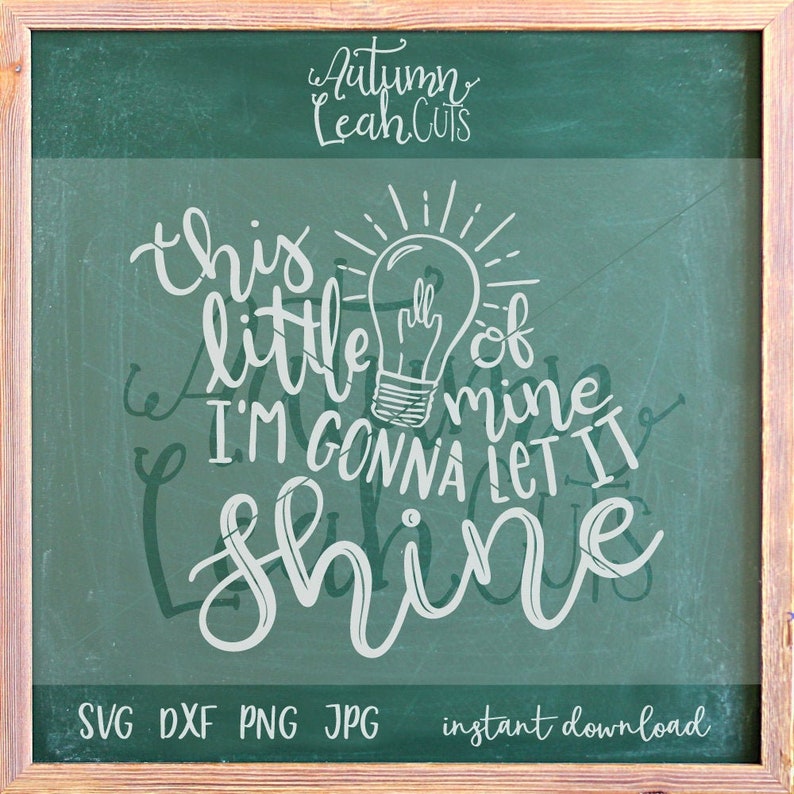 Autumn
Leah Cuts
this
little of
mine
I'M GONNA LET IT
shine
Autumn
Leah Cuts
SVG DXF PNG JPG instant download